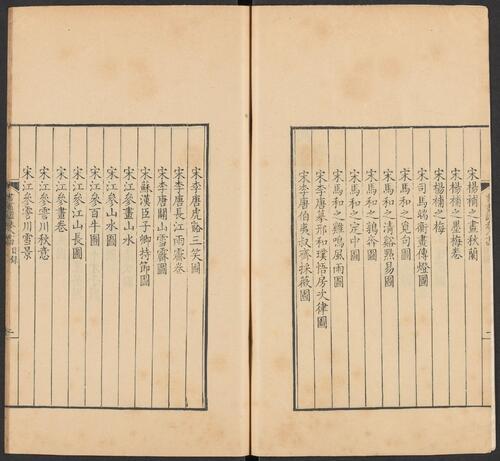 宋楊補之畫秋蘭
宋楊補之墨梅卷
宋楊補之梅
宋司馬端衡畫傳燈圖
宋馬和之覓句圖
宋馬和之清谿點易圖
宋馬和之鶉奔圖
宋馬和之定中圖
宋馬和之雞鳴風雨圖
宋李唐摹邢和璞悟房次律圖
宋李唐伯夷叔齊採薇圖
宋李唐虎谿三笑圖
宋李唐長江雨霽卷
宋李唐關山雪霽圖
宋蘇漢臣子卿持節圖
宋江參畫山水
宋江參山水圖
宋江參百牛圖
宋江參江山長圖
宋江參畫卷
宋江參霅川秋意
宋江參霅川雪景